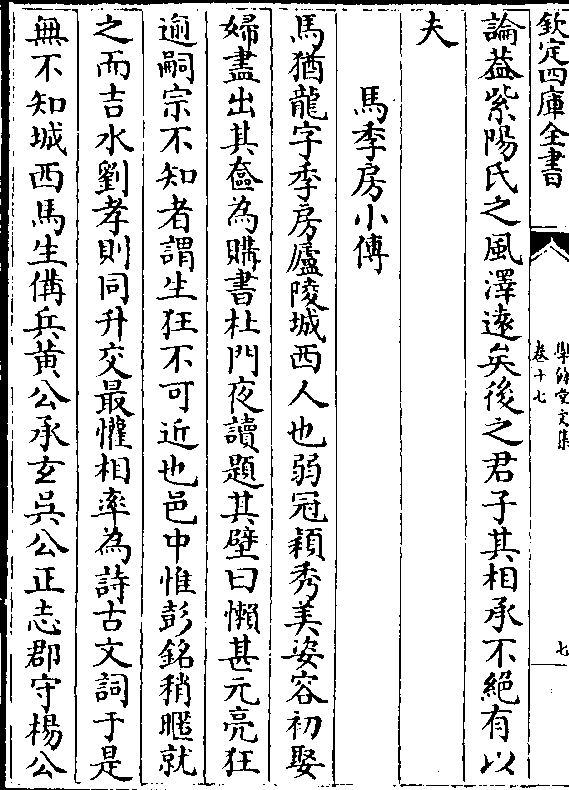 欽定四庫全書
學餘堂文集
卷十七
七
論益紫陽氏之風澤遠矣後之君子其相承不絕有以
夫
馬季房小傳
馬猶龍字季房廬陵城西人也弱冠穎秀美姿容初娶
婦盡出其奩為購書杜門夜讀題其壁曰懶甚元亮狂
逾嗣宗不知者謂生狂不可近也邑中惟彭銘稍暱就
之而吉水劉孝則同升交最懽相率為詩古文詞于是
無不知城西馬生備兵黃公承玄吳公正志郡守楊公